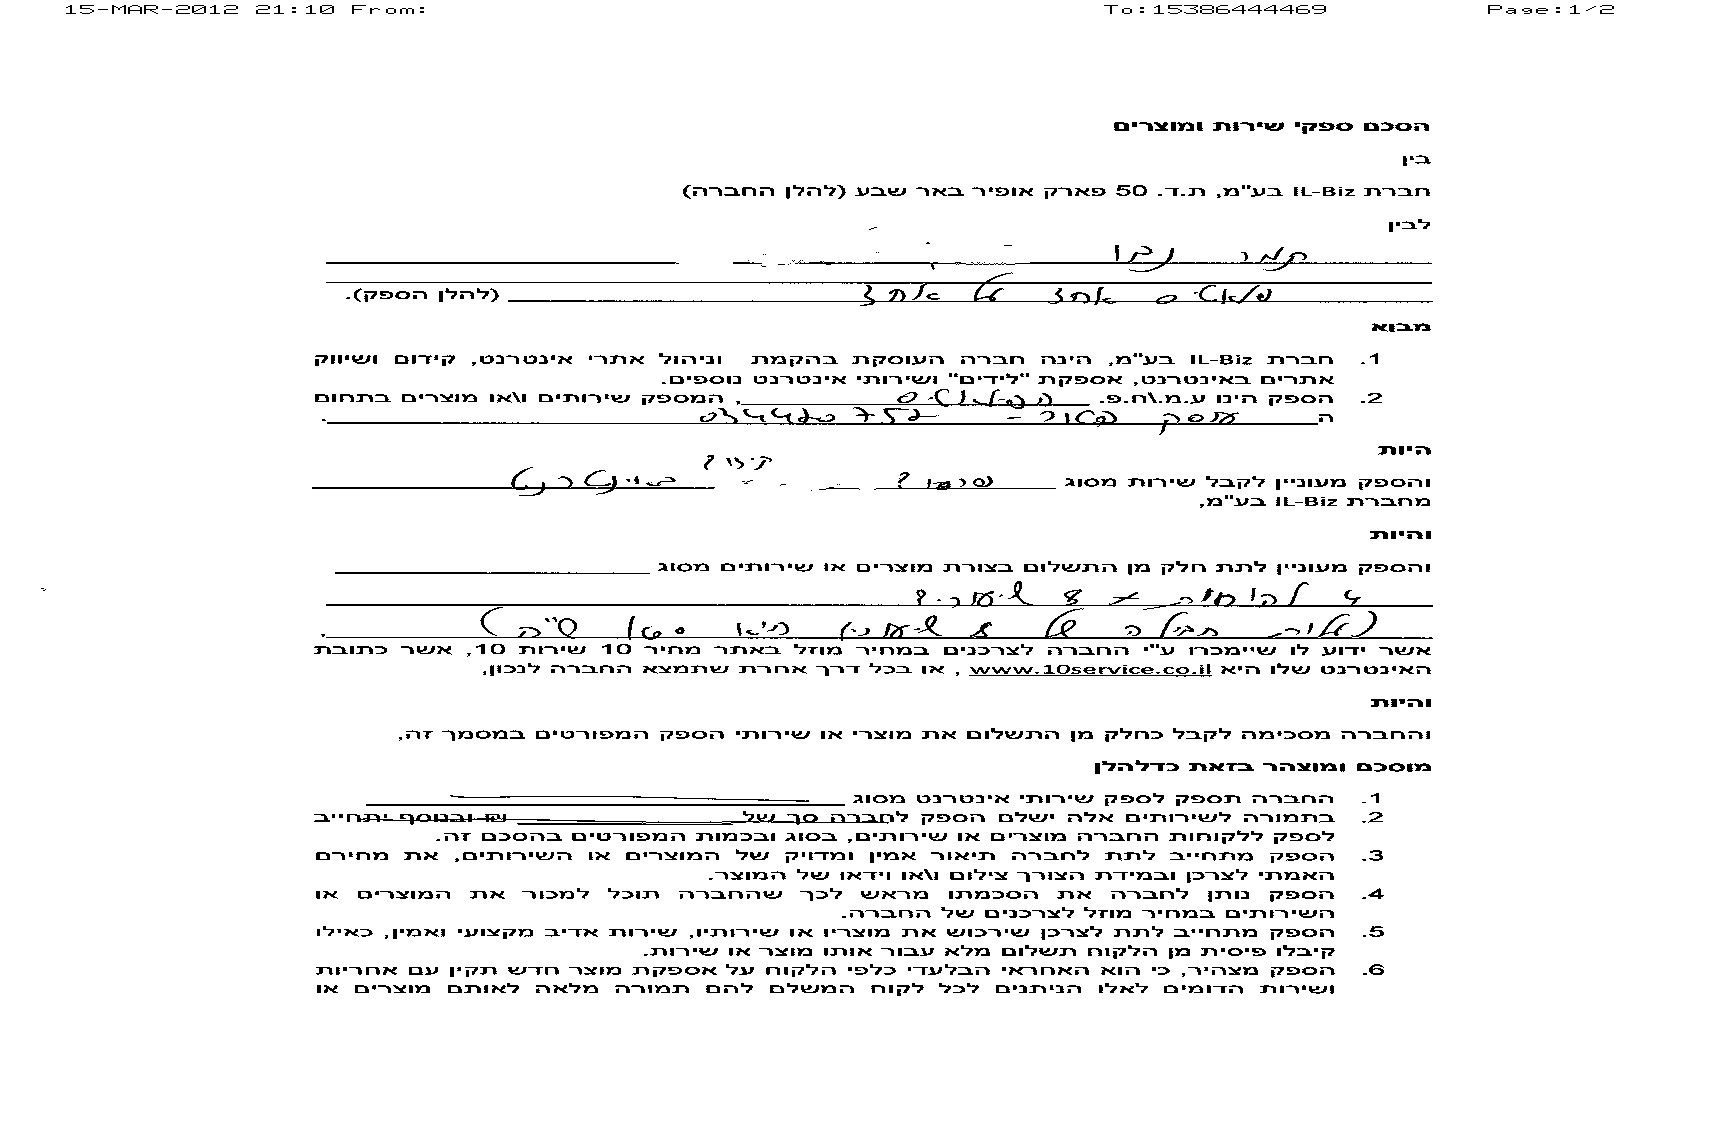 15-MAR-2012 21:10 From: To:15386444469 Page:1/2
הסכם ספקי שירות ומוצרים
בין
חברת IL-Biz בע"מ, ת.ד. 50 פארק אופיר באר שבע (להלן החברה)
לבין
תמר
אחד על אחד (להלן הספק).
מבוא
1. חברת IL-Biz בע"מ, הינה חברה העוסקת בהקמת וניהול אתרי אינטרנט, קידום ושיווק
אתרים באינטרנט, אספקת "לידים" ושירותי אינטרנט נוספים.
2. הספק הינו ע.מ.\ח.פ. , המספק שירותים ו\או מוצרים בתחום
ה עוסק פטור - 034420752.
היות
קידום
והספק מעוניין לקבל שירות מסוג פרסום באינטרנט
מחברת IL-Biz בע"מ,
והיות
והספק מעוניין לתת חלק מן התשלום בצורת מוצרים או שירותים מסוג
4 x 8
(של שיעורי ס"ה).
אשר ידוע לו שיימכרו ע"י החברה לצרכנים במחיר מוזל באתר מחיר 10 שירות 10, אשר כתובת
האינטרנט שלו היא www.10service.co.il , או בכל דרך אחרת שתמצא החברה לנכון,
והיות
והחברה מסכימה לקבל כחלק מן התשלום את מוצרי או שירותי הספק המפורטים במסמך זה,
מוסכם ומוצהר בזאת כדלהלן
1. החברה תספק לספק שירותי אינטרנט מסוג
2. בתמורה לשירותים אלה ישלם הספק לחברה סך של ₪ ובנוסף יתחייב
לספק ללקוחות החברה מוצרים או שירותים, בסוג ובכמות המפורטים בהסכם זה.
3. הספק מתחייב לתת לחברה תיאור אמין ומדויק של המוצרים או השירותים, את מחירם
האמתי לצרכן ובמידת הצורך צילום ו\או וידאו של המוצר.
4. הספק נותן לחברה את הסכמתו מראש לכך שהחברה תוכל למכור את המוצרים או
השירותים במחיר מוזל לצרכנים של החברה.
5. הספק מתחייב לתת לצרכן שירכוש את מוצריו או שירותיו, שירות אדיב מקצועי ואמין, כאילו
קיבלו פיסית מן הלקוח תשלום מלא עבור אותו מוצר או שירות.
6. הספק מצהיר, כי הוא האחראי הבלעדי כלפי הלקוח על אספקת מוצר חדש תקין עם אחריות
ושירות הדומים לאלו הניתנים לכל לקוח המשלם להם תמורה מלאה לאותם מוצרים או